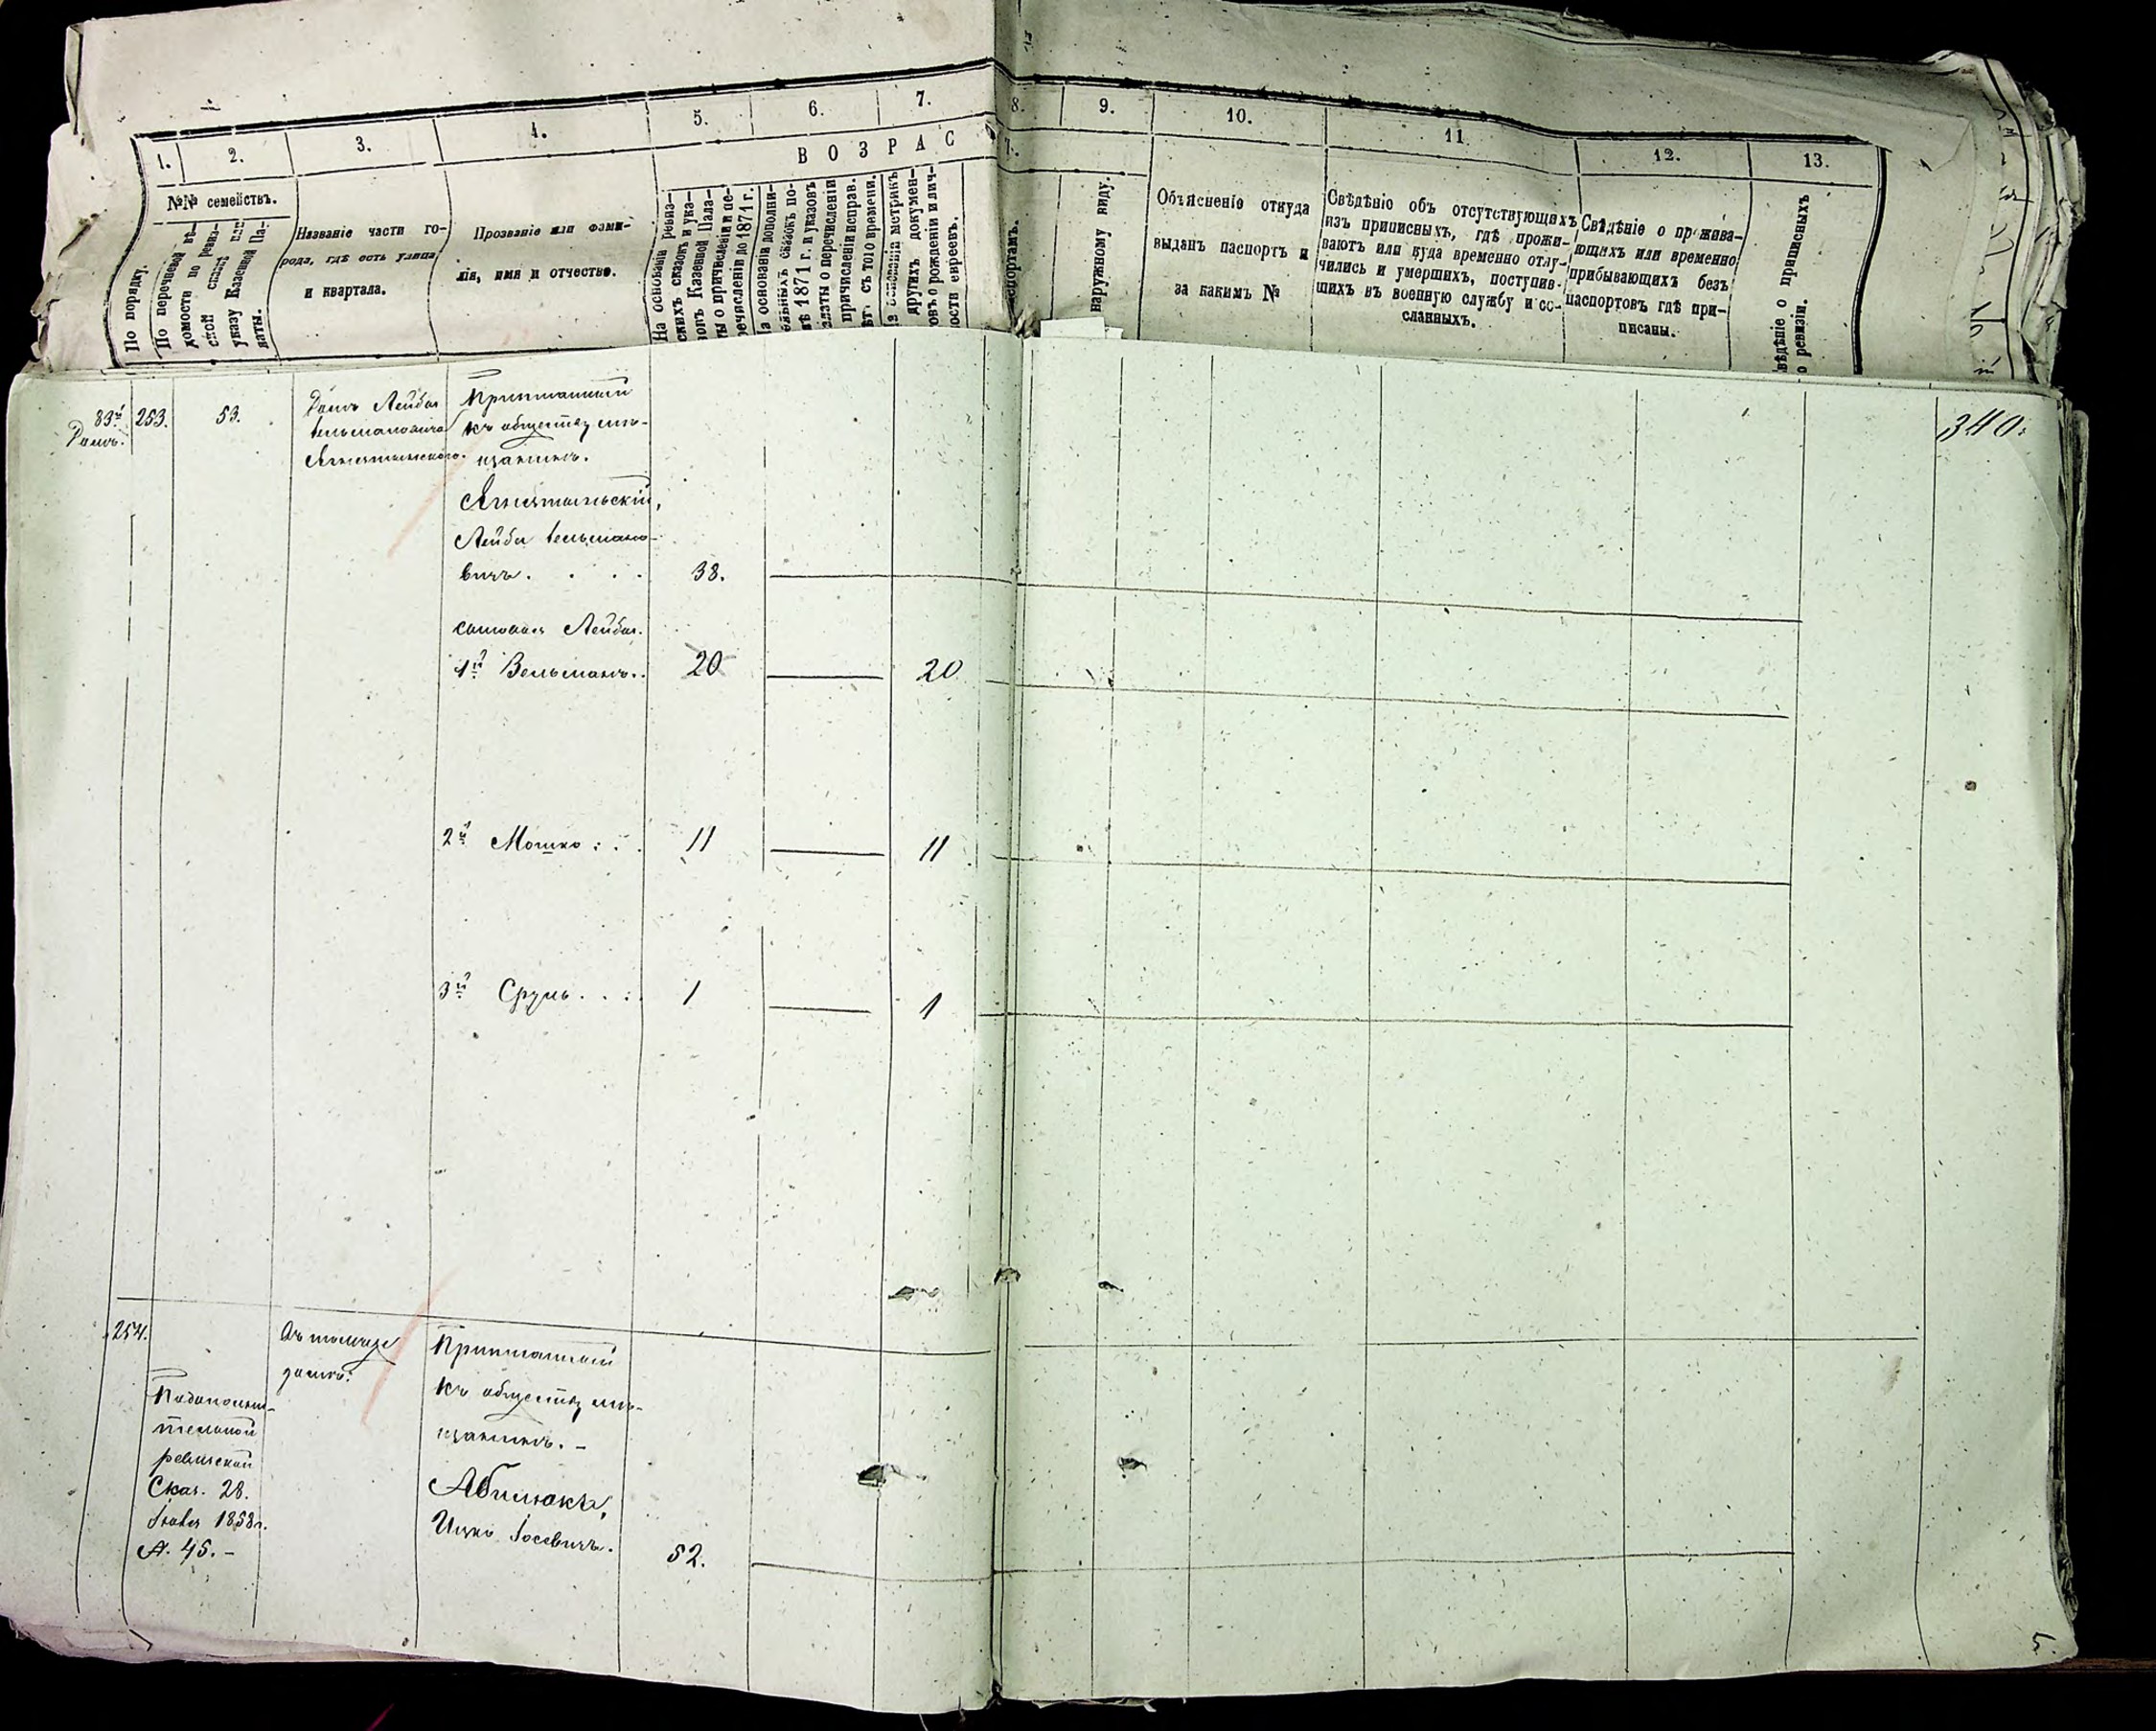 1.
2.
3.
4.
5.
6.
7.
8.
9.
10.
11
12.
13.
ВОЗРАС
№№ семействъ.
По порядку.
По перечневой вѣ-
домости по ревиз-
ской сказкѣ или
указу Казенной Па-
латы.
Названіе части го-
рода, гдѣ есть улица
и квартала.
Прозваніе или фами-
лія, имя и отчество.
На основаніи ревиз-
скихъ сказокъ и ука-
зовъ Казенной Пала-
ты о причисленіи и пе-
речисленіи до 1871 г.
На основаніи дополни-
тельныхъ сказокъ по-
слѣ 1871 г. и указовъ
Палаты о перечисленіи
причисленіи исправ.
лѣт. съ того времени.
На основаніи метрикъ
другихъ докумен-
товъ о рожденіи и лич-
ности евреевъ.
паспортамъ.
наружному виду.
Объясненіе откуда
выданъ паспортъ и
за какимъ №
Свѣдѣніе объ отсутствующихъ
изъ приписныхъ, гдѣ прожи-
ваютъ или куда временно отлу-
чились и умершихъ, поступив-
шихъ въ военную службу и со-
сланныхъ.
Свѣдѣніе о прожива-
ющихъ или временно
прибывающихъ безъ
паспортовъ гдѣ при-
писаны.
Свѣдѣніе о приписныхъ
по ревизіи.
340.
83й
Домъ.
253.
53.
Домъ Лейбы
Вельмановича
Приписанный
къ обществу мѣ-
щанинъ.
Лейба Вельмано-
вичъ. 38.
сыновья Лейбы.
1й Вельманъ. 20 20
2й Мошко 11 11
3й Сруль 1 1
254.
Въ томже
домѣ.
По дополни-
тельной
ревизской
Сказ. 28.
1858г.
№. 45.-
Приписанный
къ обществу мѣ-
щанинъ. -
Ицко Іосевичъ. 52.
5.